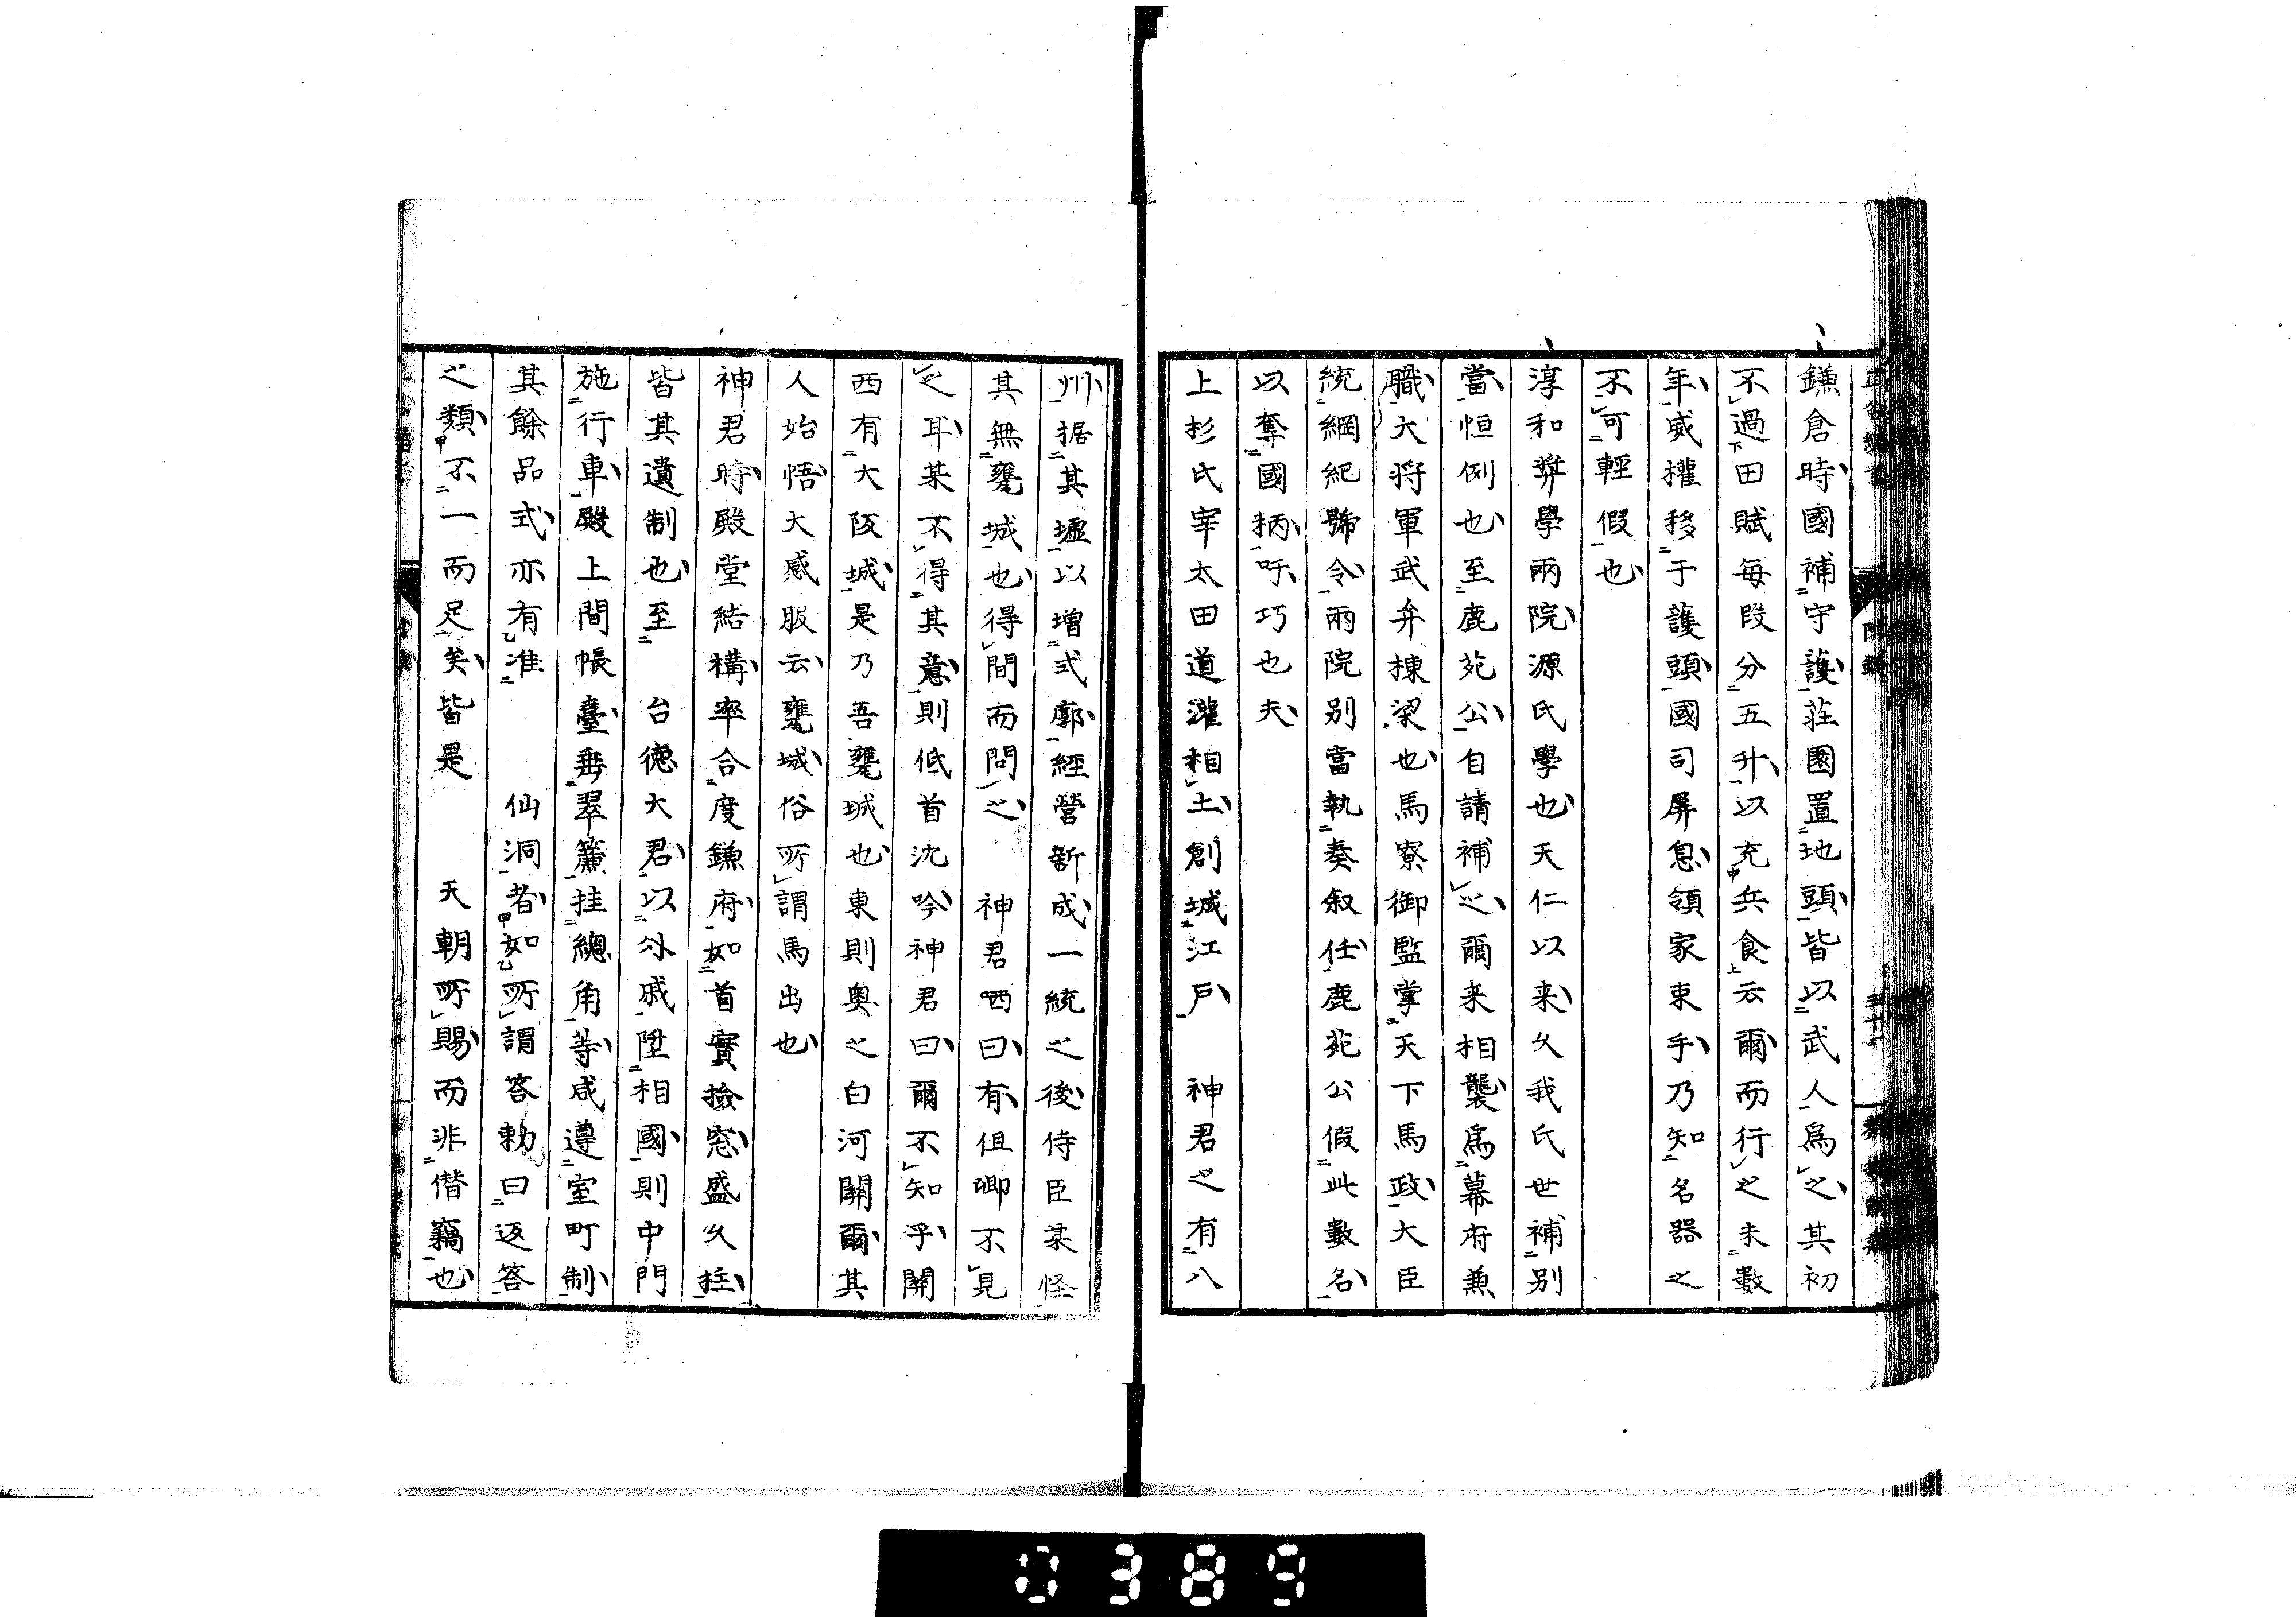 鎌倉時國補守護荘園置地頭皆以武人爲之其初
不過田賦毎段分五升以充兵食云爾而行之未數
年威權移于護頭國司屏息領家束手乃知名器之
不可輕假也
淳和弉學兩院源氏學也天仁以来久我氏世補別
當恒例也至鹿苑公自請補之爾来相襲爲幕府兼
職大将軍武弁棟梁也馬寮御監掌天下馬政大臣
統綱紀號令兩院別當執奏叙任鹿苑公假此數名
以奪國柄吁巧也夫
上杉氏宰太田道灌相土創城江戸　神君之有八
州据其墟以増式廓經營新成一統之後侍臣某怪
其無甕城也得間而問之　神君哂曰有但卿不見
之耳某不得其意則低首沈吟神君曰爾不知乎關
西有大阪城是乃吾甕城也東則奥之白河關爾其
人始悟大感服云甕城俗所謂馬出也
神君時殿堂結構率合度鎌府如首實撿窓盛久挂
皆其遺制也至　台德大君以外戚陞相國則中門
施行車殿上間帳臺垂翠簾挂總角等咸遵室町制
其餘品式亦有准　仙洞者如所謂答勅曰返答
之類不一而足矣皆是　天朝所賜而非僭竊也
0389